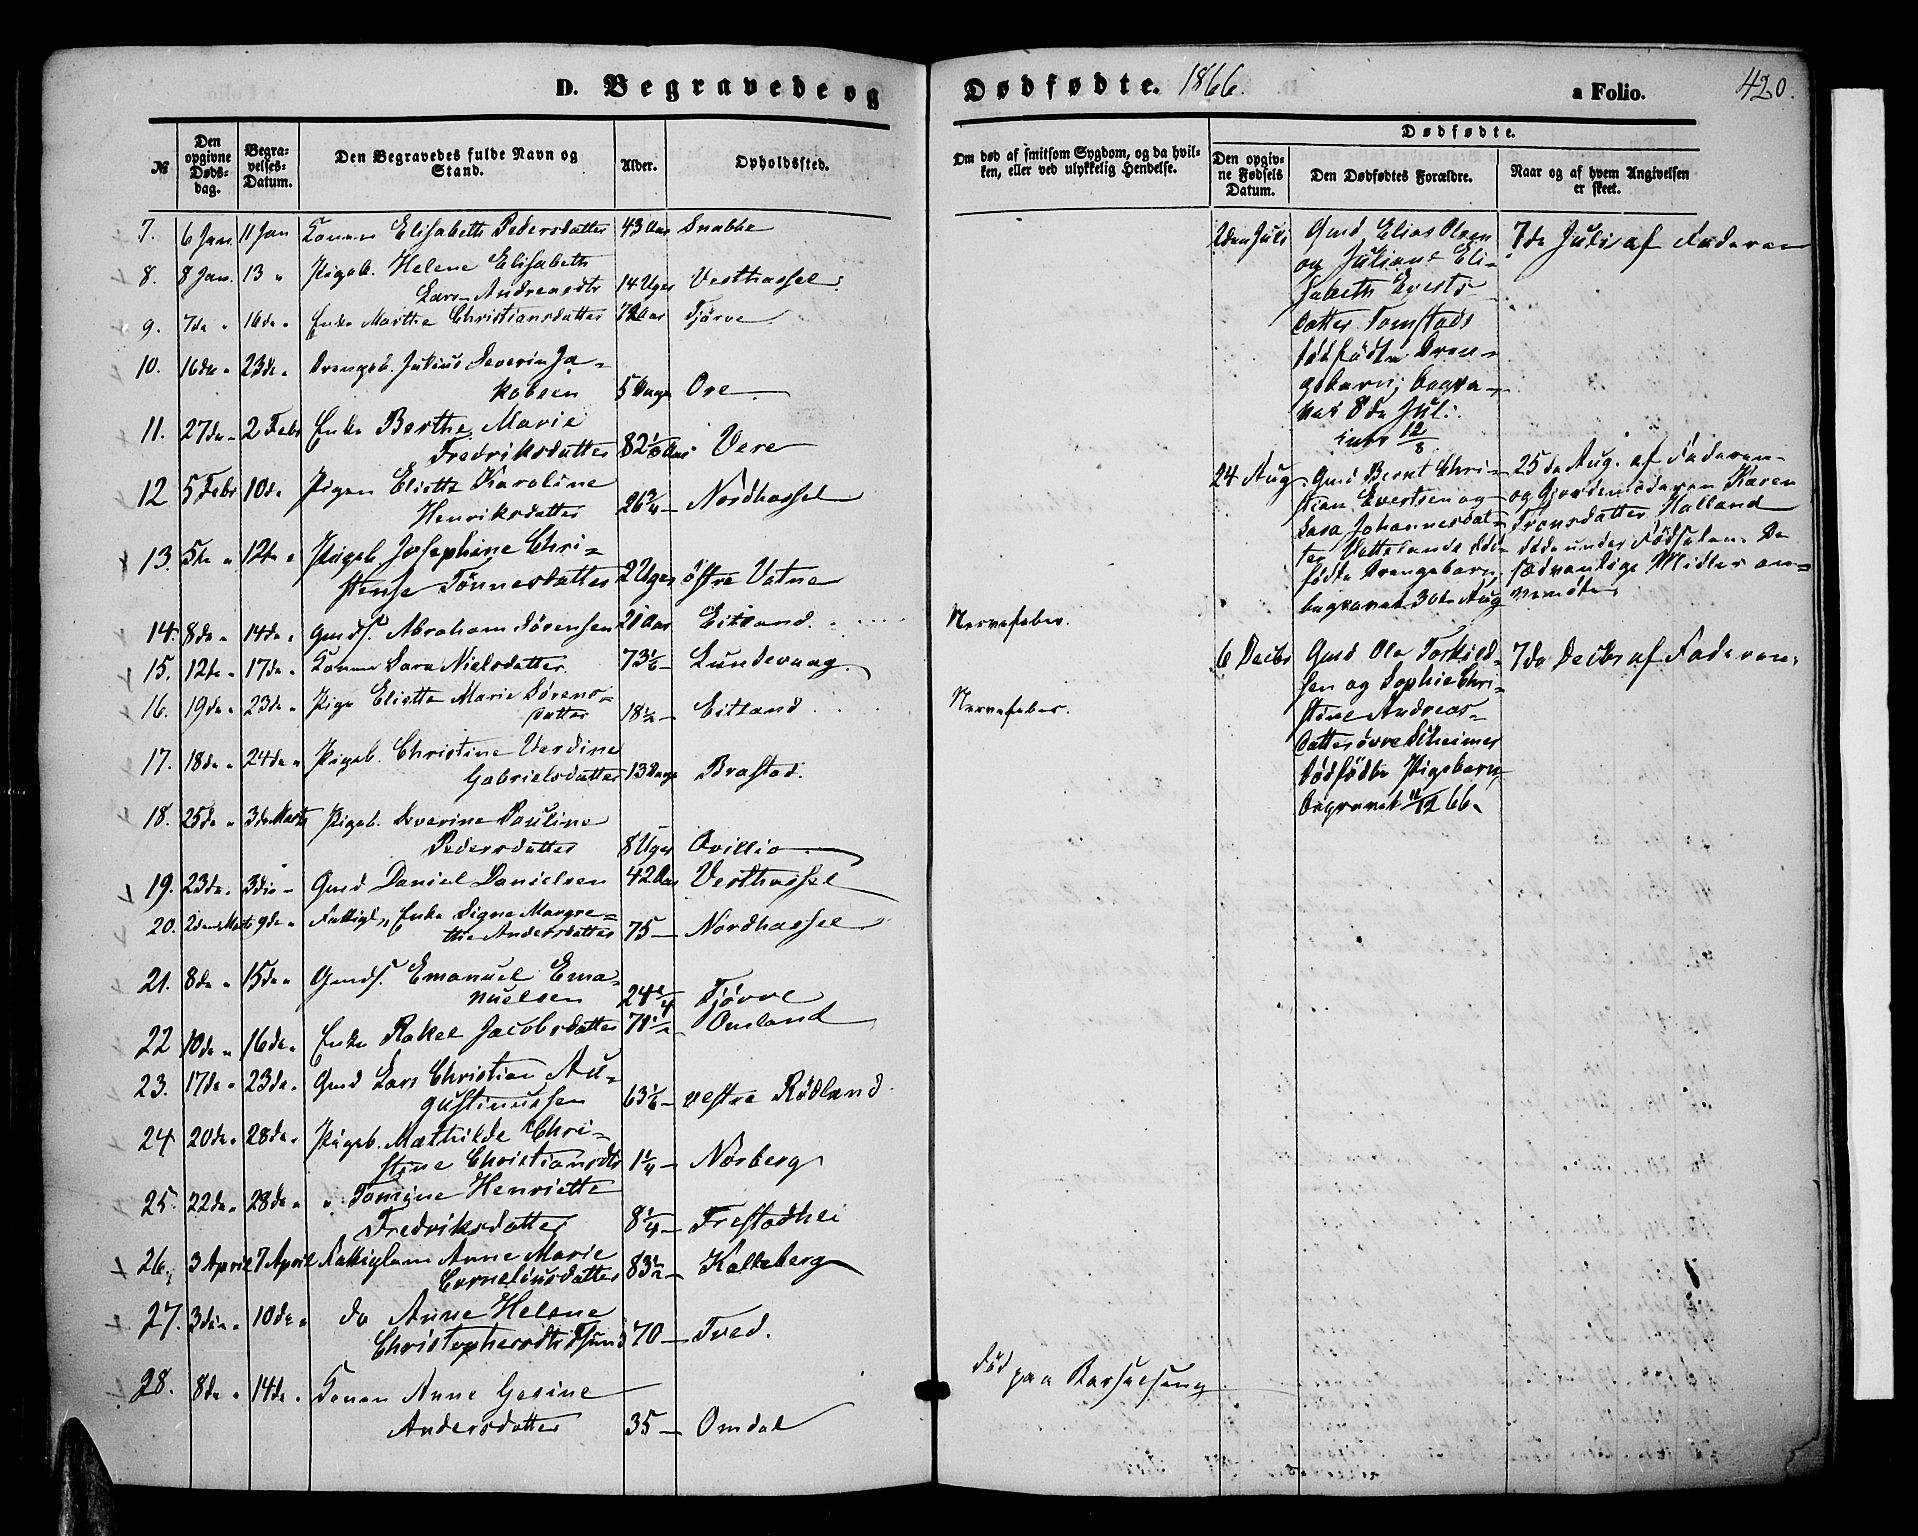 D. Begravede og
Dødfødte. 1866.
a Folio.
420.
№
Den opgivne Døds-dag.
Begra-velses-Datum.
Den Begravedes fulde Navn og Stand.
Alder.
Opholdssted.
Om død af smitsom Sygdom, og da hvil-
ken, eller ved ulykkelig Hendelse.
Dødfødte.
Den opgiv-ne Fødsels Datum.
Den Dødfødtes Forældre.
Naar og af hvem Angivelsen er skeet.
7. 6 Jan. 11 Jan Konen Elisabeth Pedersdatter 43 Aar Snabbe
8. 8 Jan. 13 " Pigeb. Helene Elisabeth
Lars-Andreasdtr 14 Uger Vesthassel.
9. 7de " 16de " Enke Marthe Christiansdatter 72 Aar Tjørve
10. 16de " 23de " Drengeb. Julius Severin Ja-
kobsen 5 Dage Ore
11. 27de " 2 Febr Enke Berthe Marie
Fredriksdatter 82 Aar Vere
12 5 Febr 10de Pigen Eliette Karoline
Henriksdatter 26 Nordhassel
13. 5te " 12te " Pigeb Josephine Chri-
stense Tönnesdatter 2 Uger östre Vatne
14. 8de " 14de " Gmds. Abraham Sørensen 21 Aar Eitland. Nervefeber.
15. 12te " 17de " Konen Sara Nielsdatter. 73 Lundevaag.
16. 19de " 23de " Pige Eliette Marie Sørens-
datter 18½ Eitland Nervefeber.
17. 18de " 24de " Pigeb. Christine Verdine
Gabrielsdatter 13 Dage Brastad.
18. 25de " 3de Marts Pigeb. Severine Pauline
Pedersdatter 8 Uger Ovillio
19. 23de " 3die " Gmd Daniel Danielsen 42 Aar Vesthassel
20. 2den Marts 9de " Fattigl, Enke Signe Margre-
the Andersdatter 75 Nordhassel
21. 8de " 15de " Gmds. Emanuel Ema-
nuelsen 24 Tjørve
22 10de " 16de " Enke Rakel Jacobsdatter 71½ Omland
23. 17de " 23de " Gmd Lars Christian Au-
gustinussen 63 vestre Rødland
24 20de " 28de " Pigeb. Mathilde Chri-
stine Christiansdtr 1¼ Nörberg
25. 22de " 28de " " Tomine Henriette
Fredriksdatter 8¼ Frestadhei
26. 3 April 7 April Fattiglem Anne Marie
Corneliusdatter 83½ Kalleberg
27. 3die " 10de " do Anne Helene
Christophersdtr 70 Tved.
28. 8de " 14de " Konen Anne Gesine
Andersdatter 35 Omdal
Död
paa Barselseng
2den Juli
Gmd Elias Olsen
og Juliane Eli-
sabeth Everts-
datter Tomstads
dødfödte Dren-
gebarn; begra-
vet 8de Juli.
12/8
7de Juli af Faderen
24 Aug
Gmd Bernt Chri-
stian Evertsen og
Sara Johannesdat-
ter Vettelands död-
födte Drengebarn,
begravet 30te Aug
25de Aug. af Faderen
og Gjordemoderen Karen
Tronsdatter Halland
døde under Födselen. De
sædvanlige Midler an-
vendte.
6 Decbr
Gmd Ole Torkild-
sen og Sophie Chri-
stine Andreas-
datter övre
dødfødte Pigebarn,
begravet 11/12 66.
7de Decbr af Faderen.